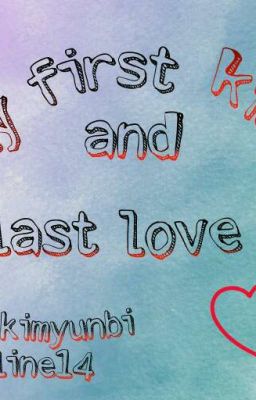 first
and
last love
kimyunbi
line14